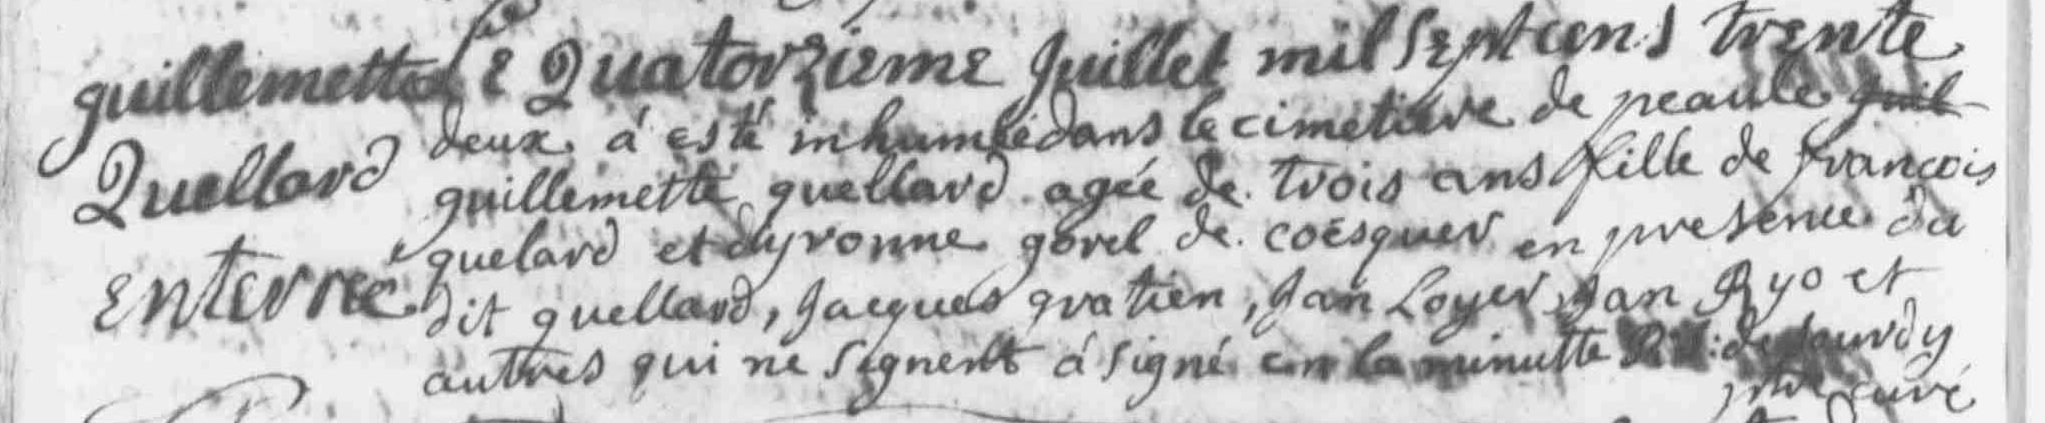 guillemette
Quellard
Enterreé
Le Quatorzieme Juillet mil sept cens trente
deux á esté inhumée dans le cimetiere de peaule guil
guillemette quellard agée de trois ans fille de françois
quelard et dyvonne gorel de coësquer en presence du
dit quellard, Jacques gratien, Jan Loyer, Jan Ryo et
autres qui ne signent á signé en la minutte
ptre curé